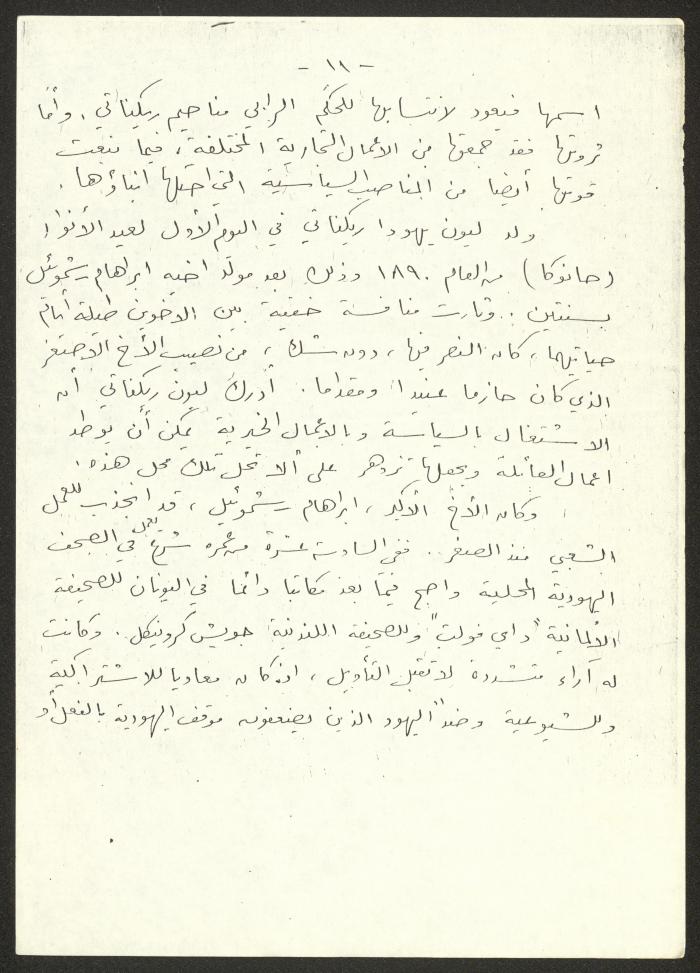 - ١١ -
اسمها فيعود لانتسابها للحكم الرابي مناحيم ريكناتي. وأما
ثروتها فقد جمعتها من الأعمال التجارية المختلفة، فيما نبعت
قوتها أيضا من المناصب السياسية التي احتلها ابناؤها.
ولد ليون يهودا ريكناتي في اليوم الأول لعيد الأنوار
(حانوكا) من العام ١٨٩٠ وذلك بعد مولد اخيه ابراهام شموئيل
بسنتين.. وثارت منافسة خفية بين الاخوين طيلة أيام
حياتهما، كان النصر فيها، دون شك، من نصيب الأخ الأصغر
الذي كان حازما عنيدا ومقداما. أدرك ليون ريكناتي أن
الاشتغال بالسياسة وبالأعمال الخيرية يمكن أن يوطد
اعمال العائلة ويجعلها تزدهر على ألا تحل تلك محل هذه.
وكان الأخ الأكبر، ابراهام شموئيل، قد انجذب للعمل
الشعبي منذ الصغر.. ففي السادسة عشرة من عمره شرع يعمل في الصحف
اليهودية المحلية واصبح فيما بعد مكاتبا دائما في اليونان للصحيفة
الألمانية "داي فولت" وللصحيفة اللندنية جويش كرونيكل. وكانت
له آراء متشددة لا تقبل التأويل، اذ كان معاديا للاشتراكية
وللشيوعية وضد اليهود الذين يضعفون موقف اليهودية بالفعل أو